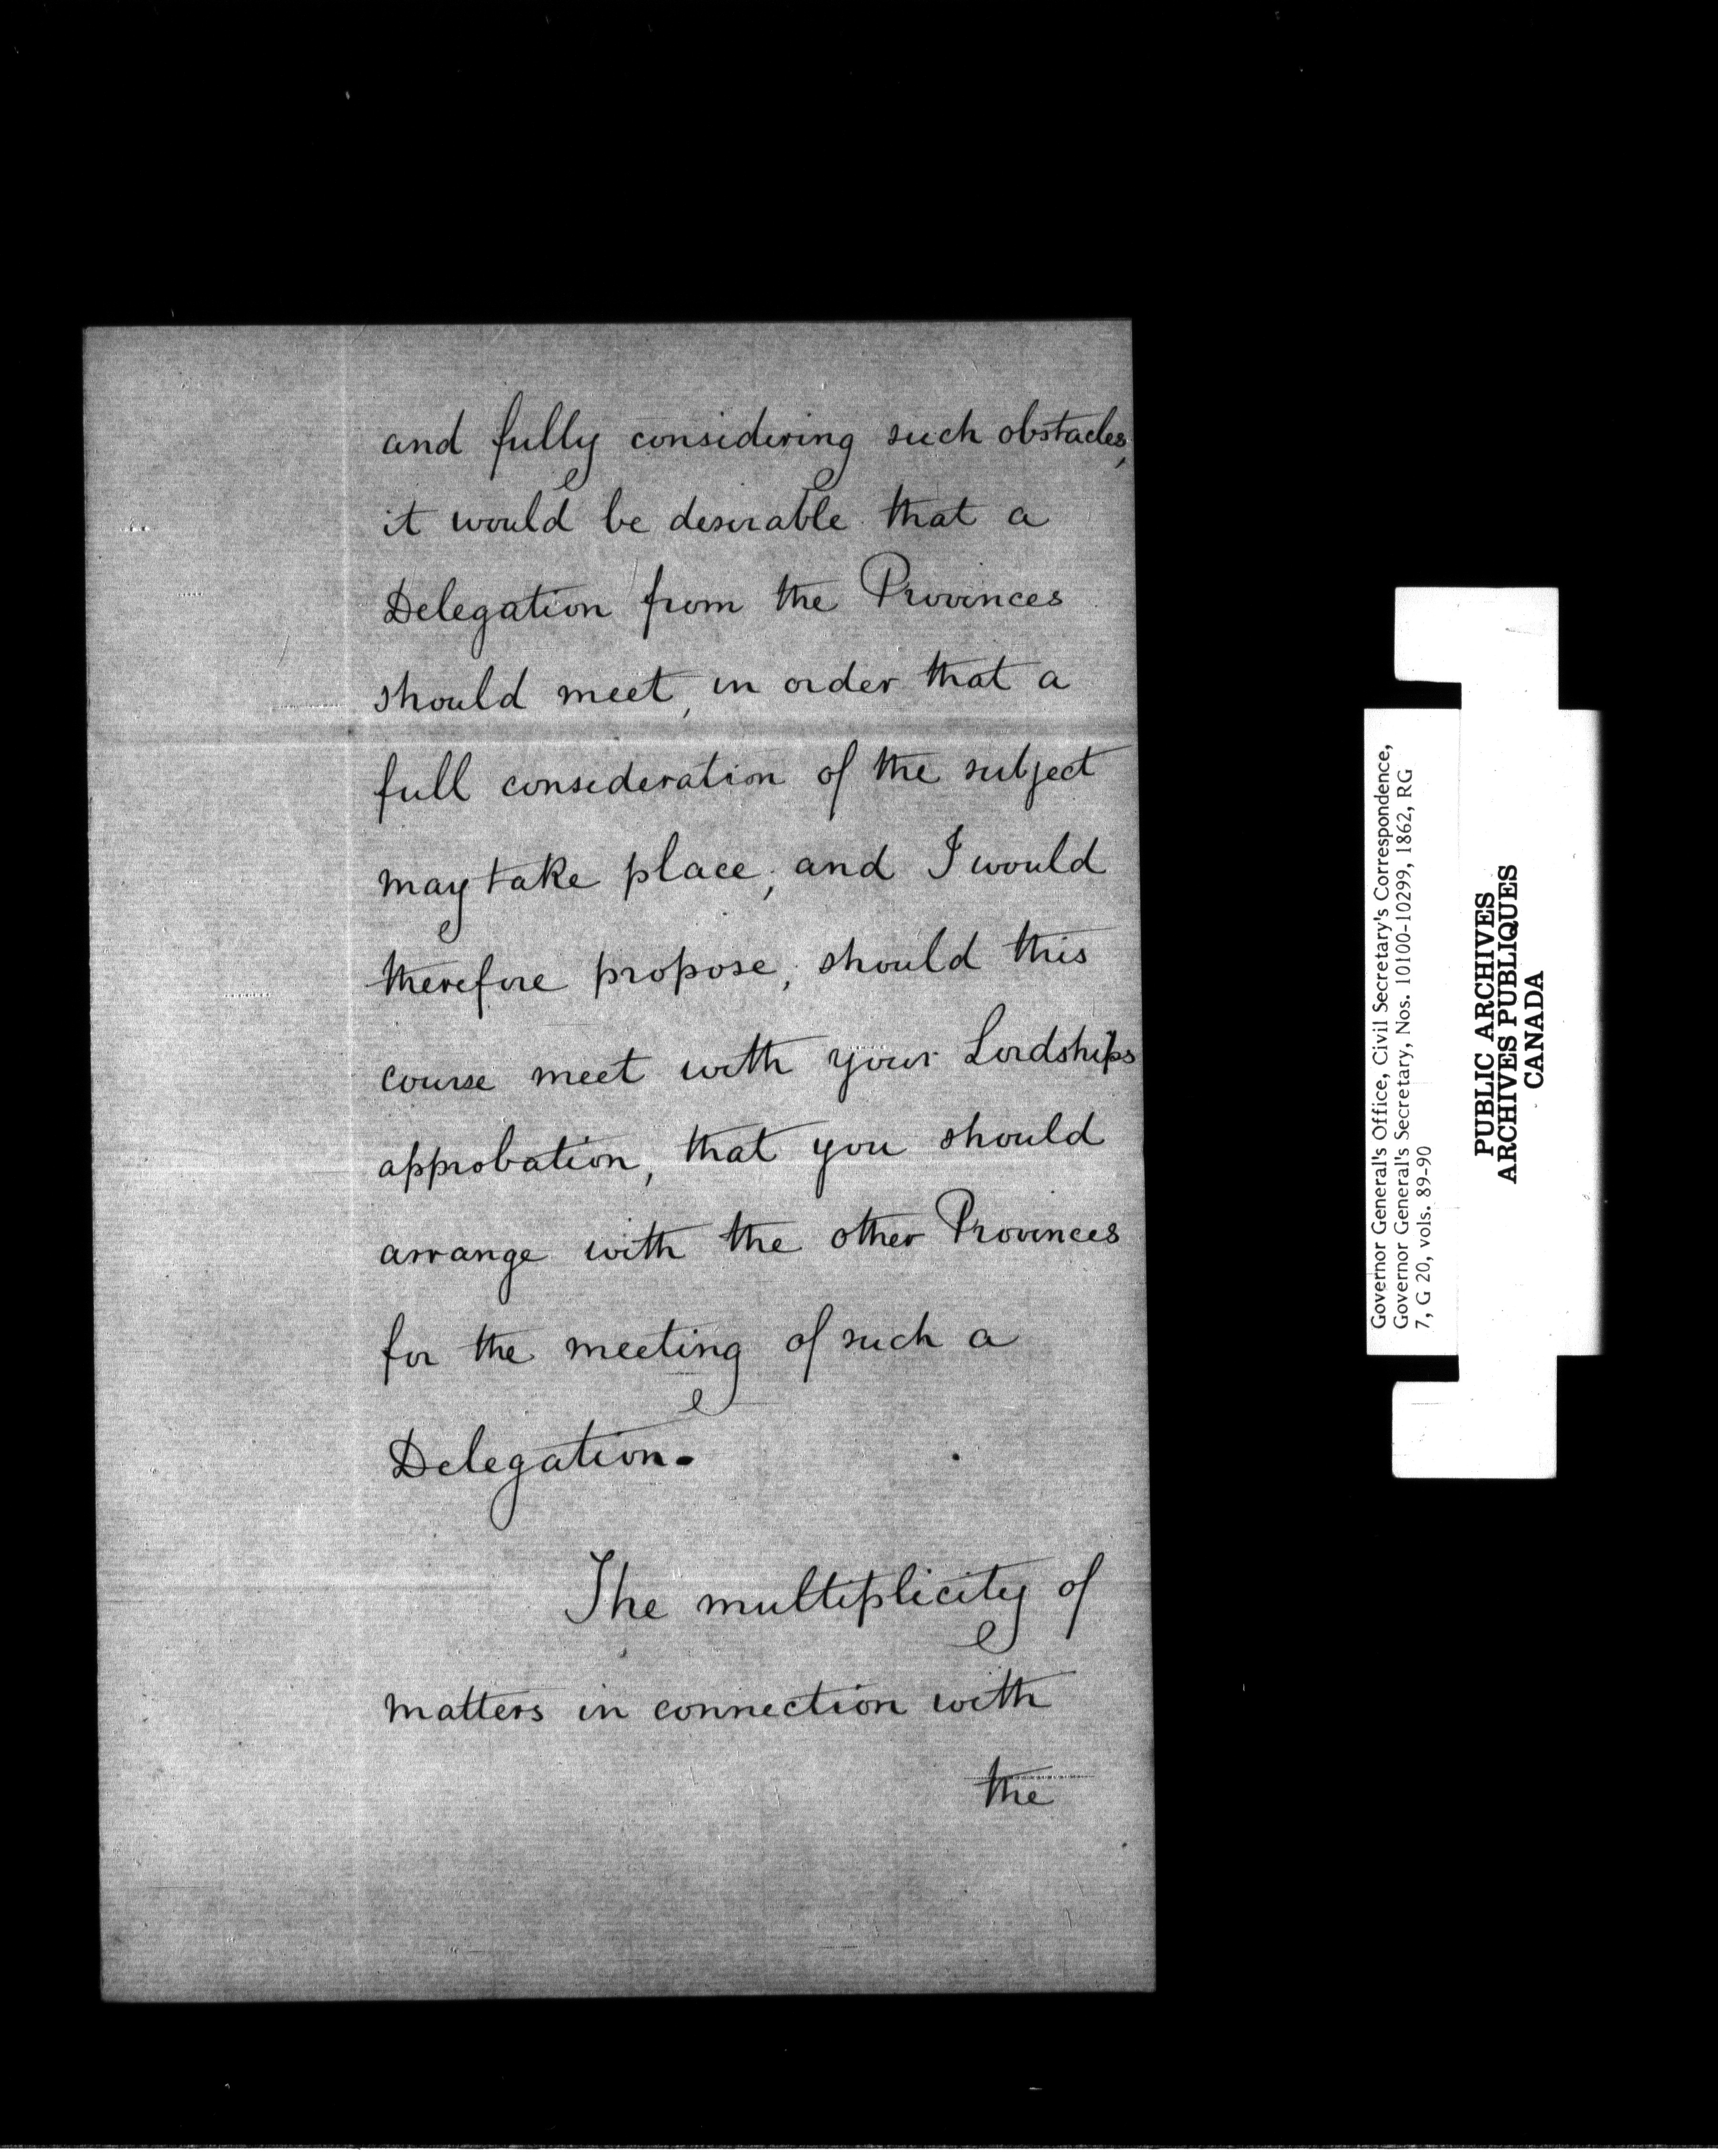 and fully considering such obstacles,
it would be desirable that a
Delegation from the Provinces
should meet, in order that a
full consideration of the subject
may take place, and I would
therefore propose, should this
course meet with your Lordships
approbation, that you should
arrange with the other Provinces
for the meeting of such a
Delegation.
The multiplicity of
matters in connection with
the
Governor General's Office, Civil Secretary's Correspondence,
Governor General's Secretary, Nos. 10100-10299, 1862, RG
7, G 20, vols. 89-90
PUBLIC ARCHIVES
ARCHIVES PUBLIQUES
CANADA